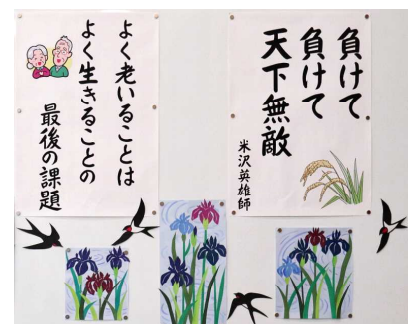 負けて
負けて
天下無敵
米沢英雄師
よく老いることは
よく生きることの
最後の課題